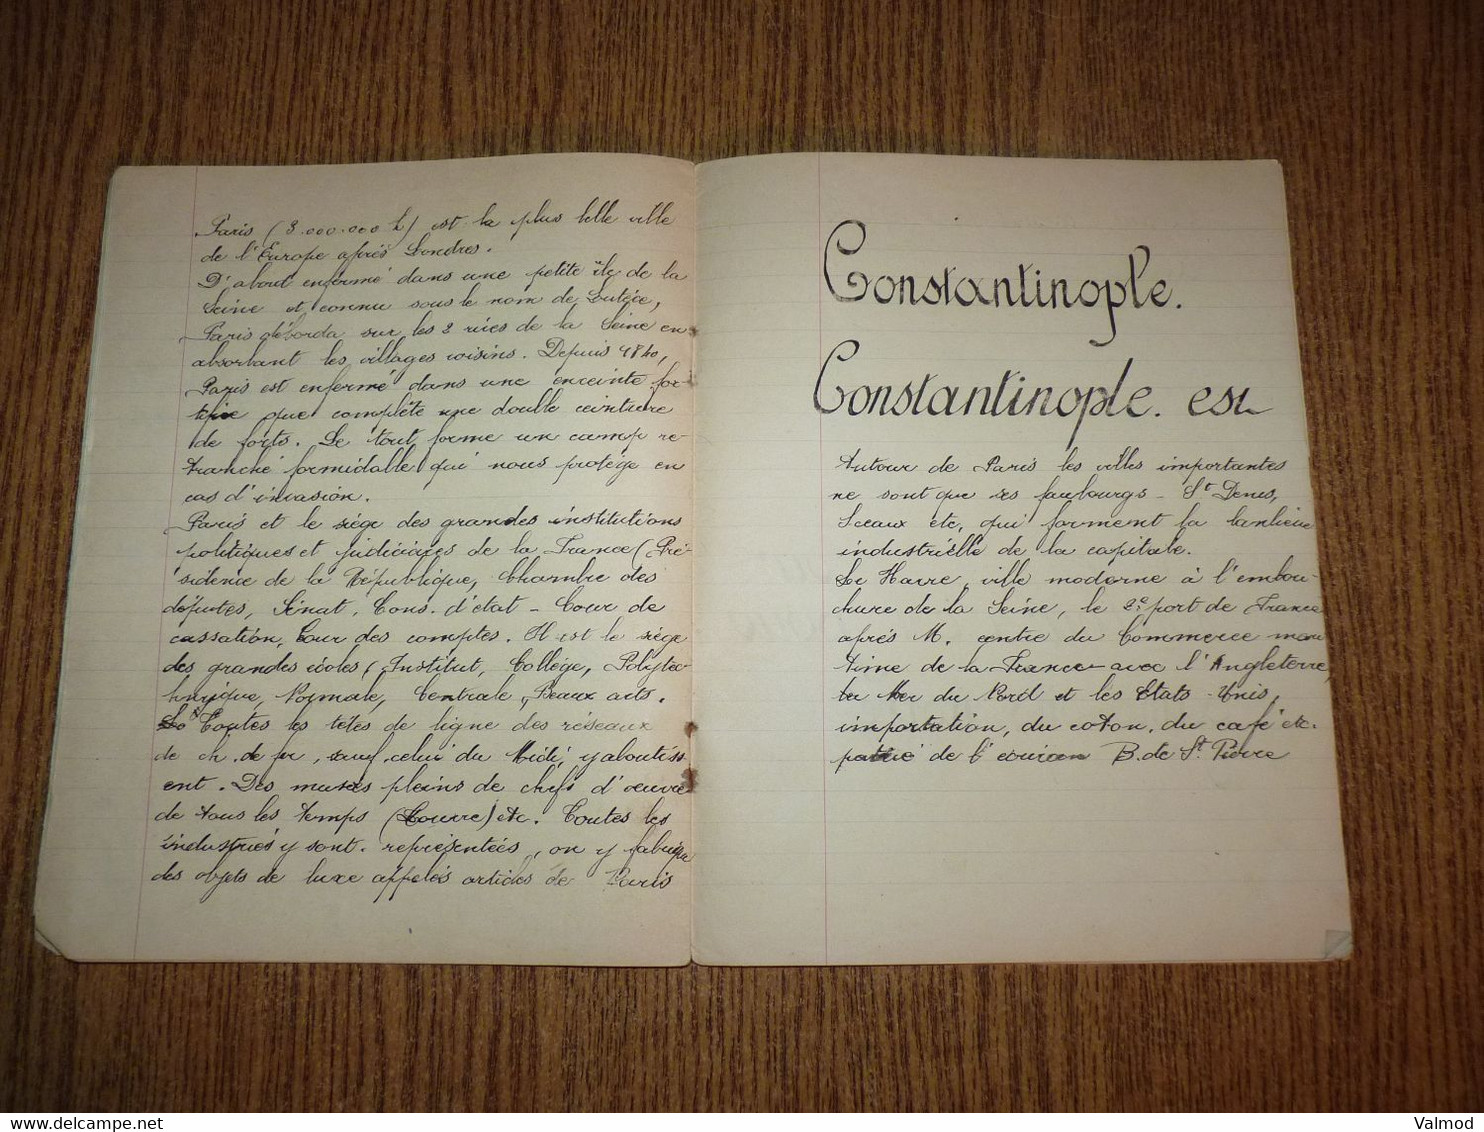 Paris (3.000.000 h) est la plus belle ville
de l'Europe après Londres.
D'abord enfermé dans une petite île de la
Seine et connu sous le nom de Lutèce,
Paris déborda sur les 2 rives de la Seine en
absorbant les villages voisins. Depuis 1840,
Paris est enfermé dans une enceinte for
que complète une double ceinture
de forts. Le tout forme un camp re-
tranché formidable qui nous protège en
cas d'invasion.
Paris et le siège des grandes institutions
politiques et judiciaires de la France (Pré-
sidence de la République, Chambre des
députés, Sénat, Cons. d'état - Cour de
cassation, Cour des comptes. Il est le siège
des grandes écoles (Institut, Collège, Polytec-
hnyque, Normale, Centrale, Beaux arts.
Toutes les têtes de ligne des réseaux
de ch. de fr, sauf celui du Midi, y aboutiss
ent. Des musés pleins de chefs d'œuvre
de tous les temps (Louvre) etc. Toutes les
industries y sont représentées, on y fabrique
des objets de luxe appelés articles de Paris
Constantinople.
Constantinople. est
Autour de Paris les villes importantes
ne sont que ses faubourgs - St Denis,
Sceaux etc, qui forment la banlieue
industrielle de la capitale.
Le Havre, ville moderne à l'embou-
chure de la Seine, le 2e port de France
après M. centre du Commerce mari
time de la France avec l'Angleterre,
la Mer du Nord et les Etats-Unis,
importation, du coton, du café etc.
patrie de l'écrivain B. de St Pierre
Valmod